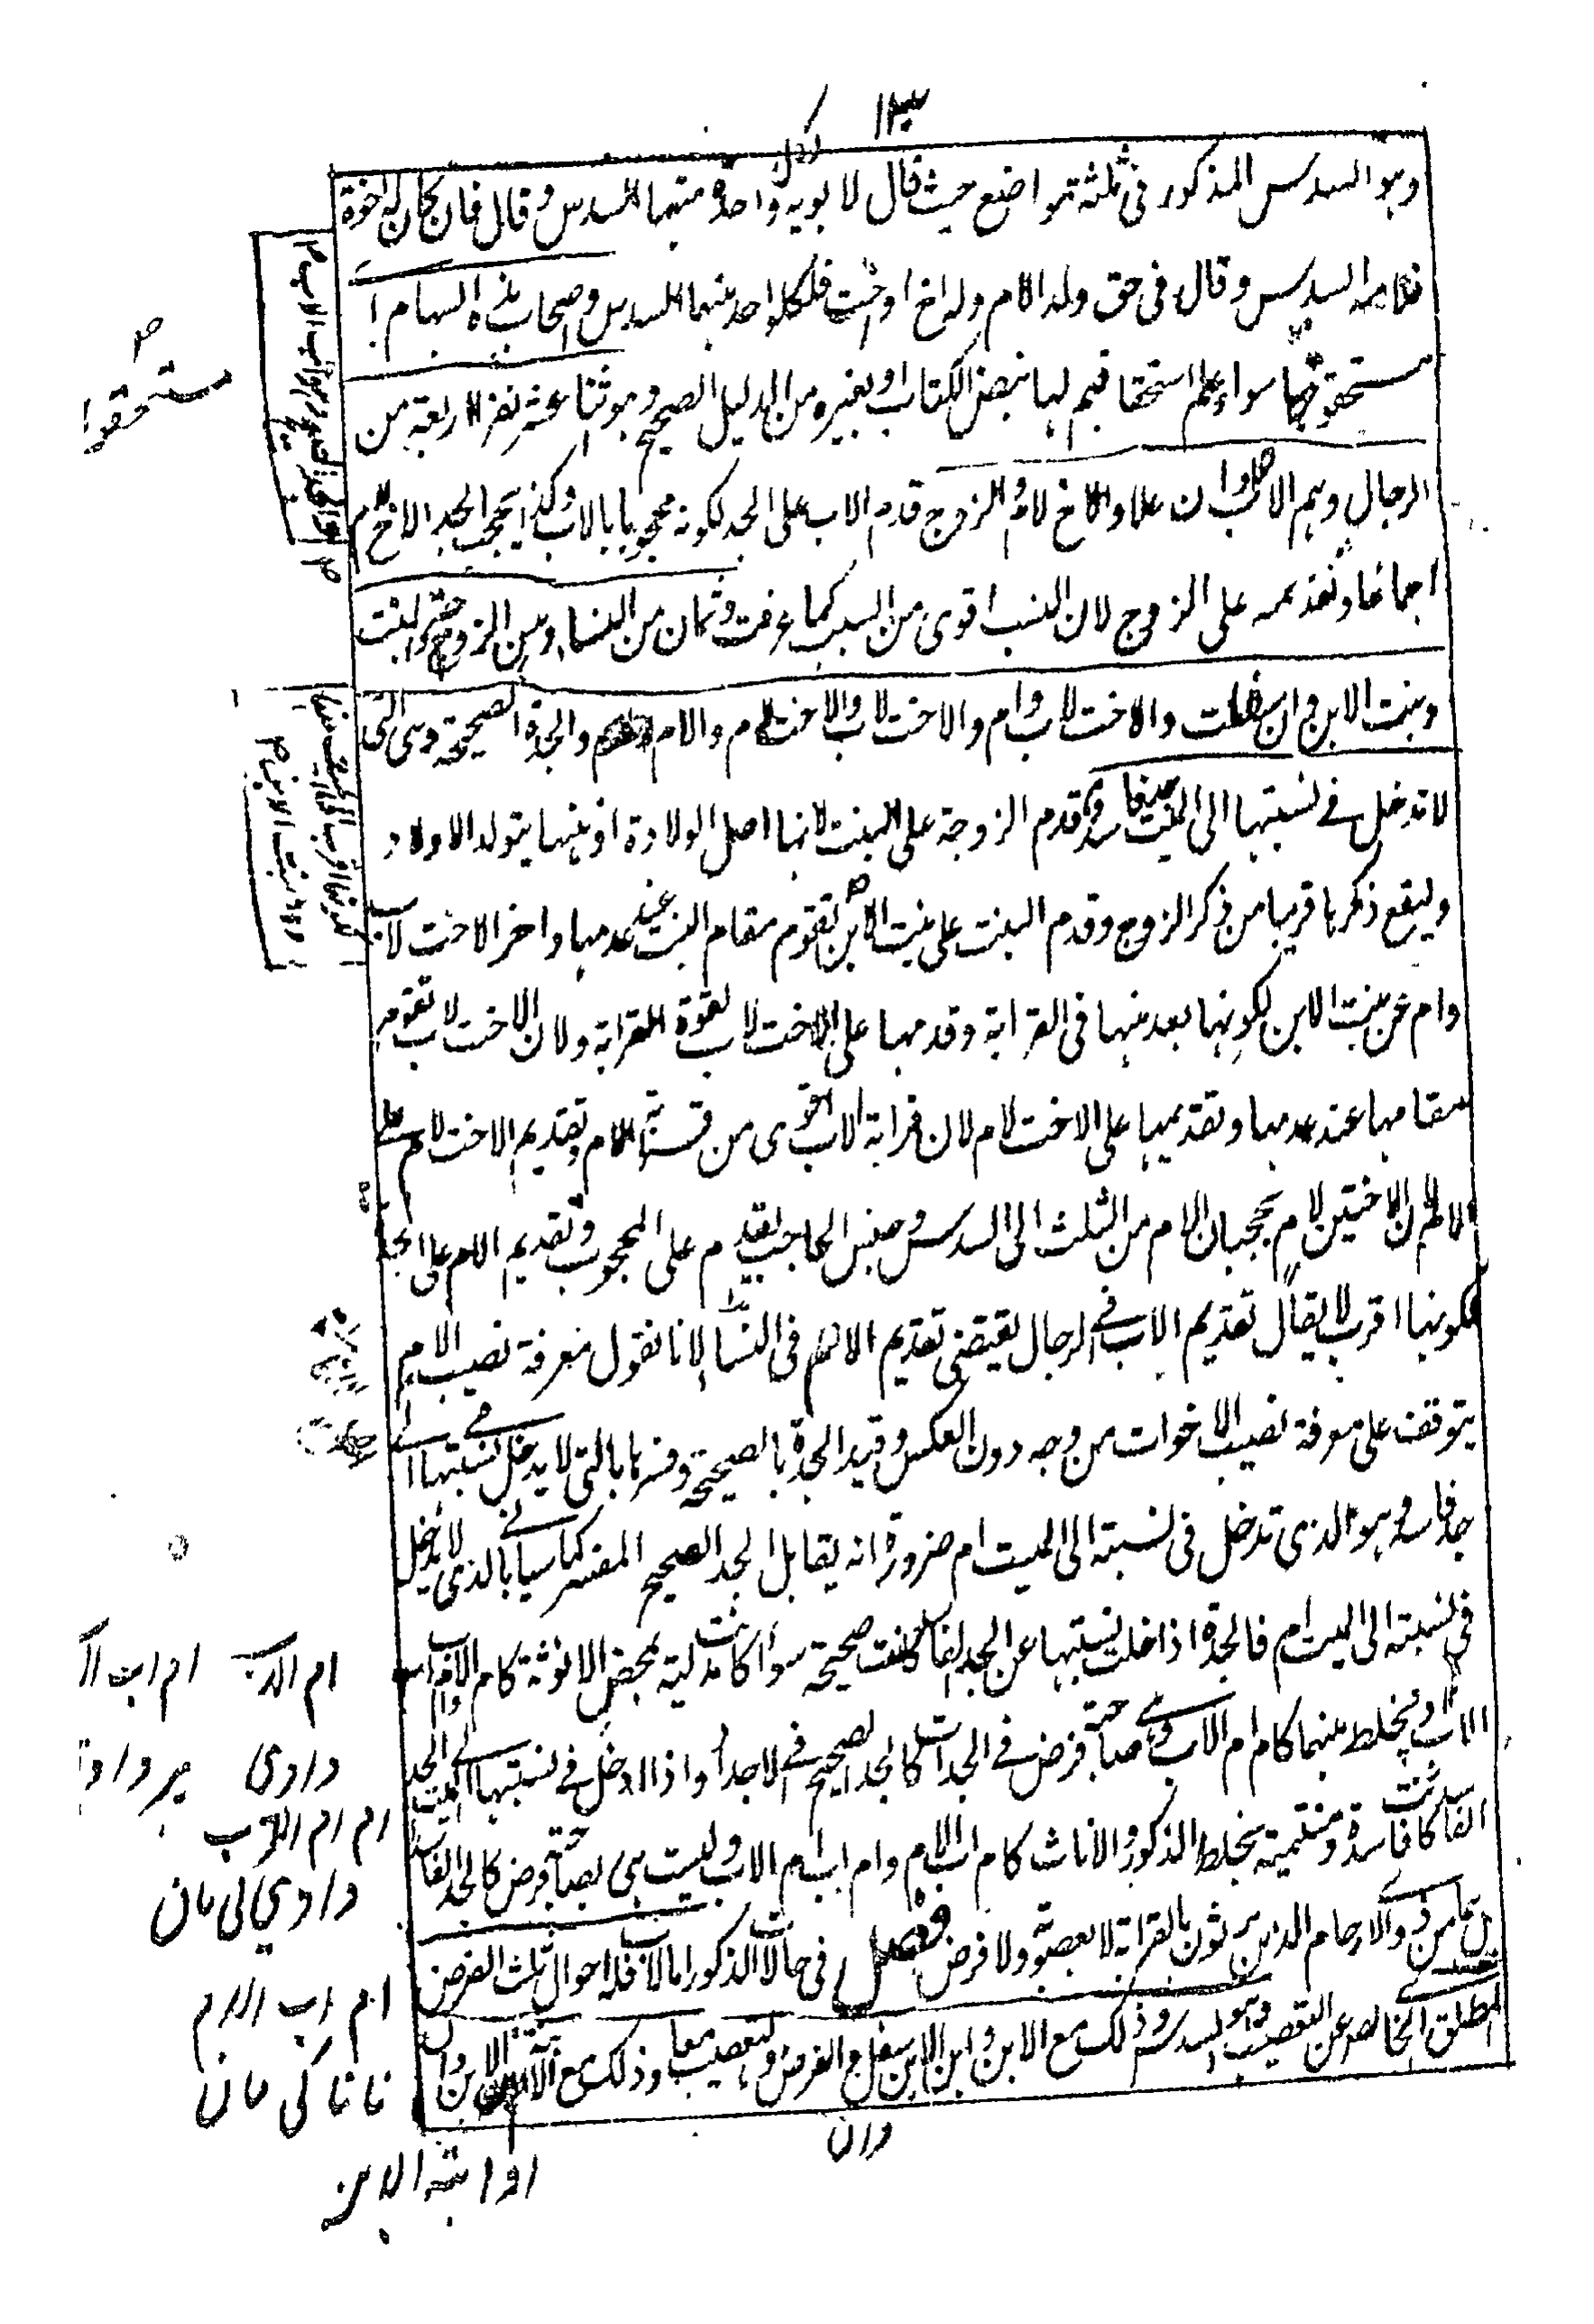 ١٣
وهو السدس المذكور في ثلثة مواضع حيث قال لابويه لكل واحد منهما السدس وقال فان كان له اخوة
فلامه السدس وقال في حق ولد الام وله اخ او اخت فلكل واحد منهما السدس واصحاب هذه السهام
مستحقوها سواء علم استحقاقهم لها بنص الكتاب او بغيره من الدليل الصحيح وهو اثنا عشر نفرا اربعة من
الرجال وهم الاب والجد وان علا والاخ لام والزوج قدم الاب على الجد لكونه محجوبا بالاب وكذا يحجب الجد الاخ لام
اجماعا وتقديمه على الزوج لان النسب اقوى من السبب كما عرفت وثمان من النساء وهن الزوجة والبنت
وبنت الابن وان سفلت والاخت لاب وام والاخت لاب والاخت لام والام والجدة الصحيحة وهي التي
لا تدخل في نسبتها الى الميت جد فاسد وقدم الزوجة على البنت لانها اصل الولادة اذ منها يتولد الاولاد
وليقع ذكرها قريبا من ذكر الزوج وقدم البنت على بنت الابن لتقوم مقام البنت عند عدمها واخر الاخت لاب
وام عن بنت الابن لكونها بعد منها في القرابة وقدمها على الاخت لاب لقوة القرابة ولان الاخت لاب تقوم
مقامها عند عدمها وتقديمها على الاخت لام لان قرابة الاب اقوى من قرابة الام وتقديم الاخت لام على
الام لان الاختين لام يحجبان الام من الثلث الى السدس وجنس الحاجب يقدم على المحجوب وتقديم الام على الجدة
لكونها اقرب لا يقال تقديم الاب في الرجال يقتضي تقديم الام في النساء لانا نقول معرفة نصيب الام
يتوقف على معرفة نصيب الاخوات من وجه دون العكس وقيد الجدة بالصحيحة وفسرها بالتي لا يدخل في نسبتها الى
جد فاسد وهو الذي تدخل في نسبته الى الميت ام ضرورة انه يقابل الجد الصحيح المفسر كما سيأتي بالذي لا يدخل
في نسبته الى الميت ام فالجدة اذا خلت نسبتها عن الجد الفاسد كانت صحيحة سواء كانت مدلية بمحض الانوثة كام الام
الاب او بخلط منهما كام ام الاب وهي صاحبة فرض في الجدات كالجد الصحيح في الاجداد واذا دخل في نسبتها الى الميت الجد
الفاسد كانت فاسدة ومنتمية بخلط الذكور والاناث كام اب الام وام اب ام الاب وليست هي بصاحبة فرض كالجد الفاسد
بل هما من ذوي الارحام الذين يرثون بالقرابة لا بعصوبة ولا فرض فصل في حالات الذكور اما الاب فله احوال ثلث الفرض
المطلق الخالص عن التعصيب وهو السدس وذلك مع الابن وابن الابن وان سفل والفرض والتعصيب معا وذلك مع ابنة الابن وان
وان
او ابنة الابن
مستحقوا
ام الاب
ام اب
دادي
پردادي
ام ام الاب
دادي كي مان
ام اب الام
نانا كي مان